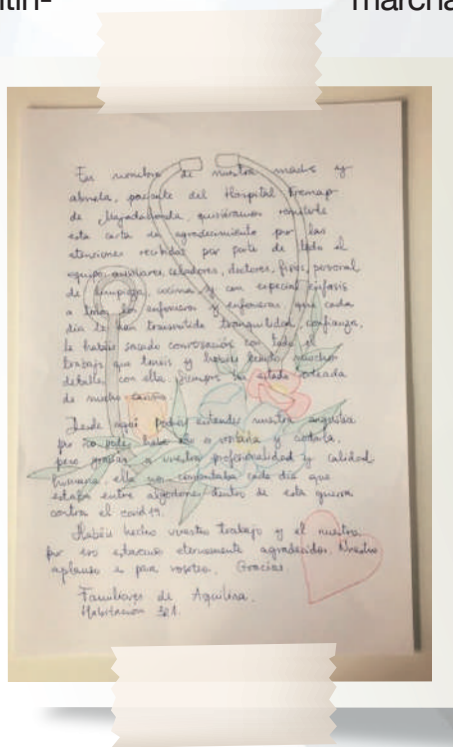 marcha
En nombre de nuestra madre y
abuela, paciente del Hospital Fremap
de Majadahonda, quisiéramos remitirle
esta carta de agradecimiento por las
atenciones recibidas por parte de todo el
equipo: auxiliares, celadores, doctores, fisios, personal
de limpieza, cocina y con especial énfasis
a todos los enfermeros y enfermeras que cada
día le han transmitido tranquilidad, confianza,
le habéis sacado conversación con todo el
trabajo que tenéis y habéis tenido muchos
detalles con ella. Siempre ha estado rodeada
de mucho cariño.
Desde aquí podéis entender nuestra angustia
por no poder haber ido a visitarla y cuidarla,
pero gracias a vuestra profesionalidad y calidad
humana, ella nos comentaba cada día que
estaba entre algodones dentro de esta guerra
contra el covid 19.
Habéis hecho vuestro trabajo y el nuestro
por eso estaremos eternamente agradecidos. Nuestro
aplauso es para vosotros. Gracias
Familiares de Aquilina.
Habitación 321.